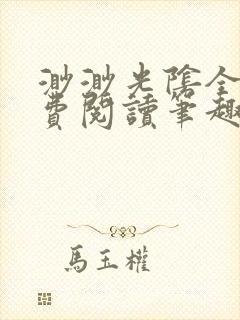 渺渺光陰全
費閱讀筆趣
馬玉權